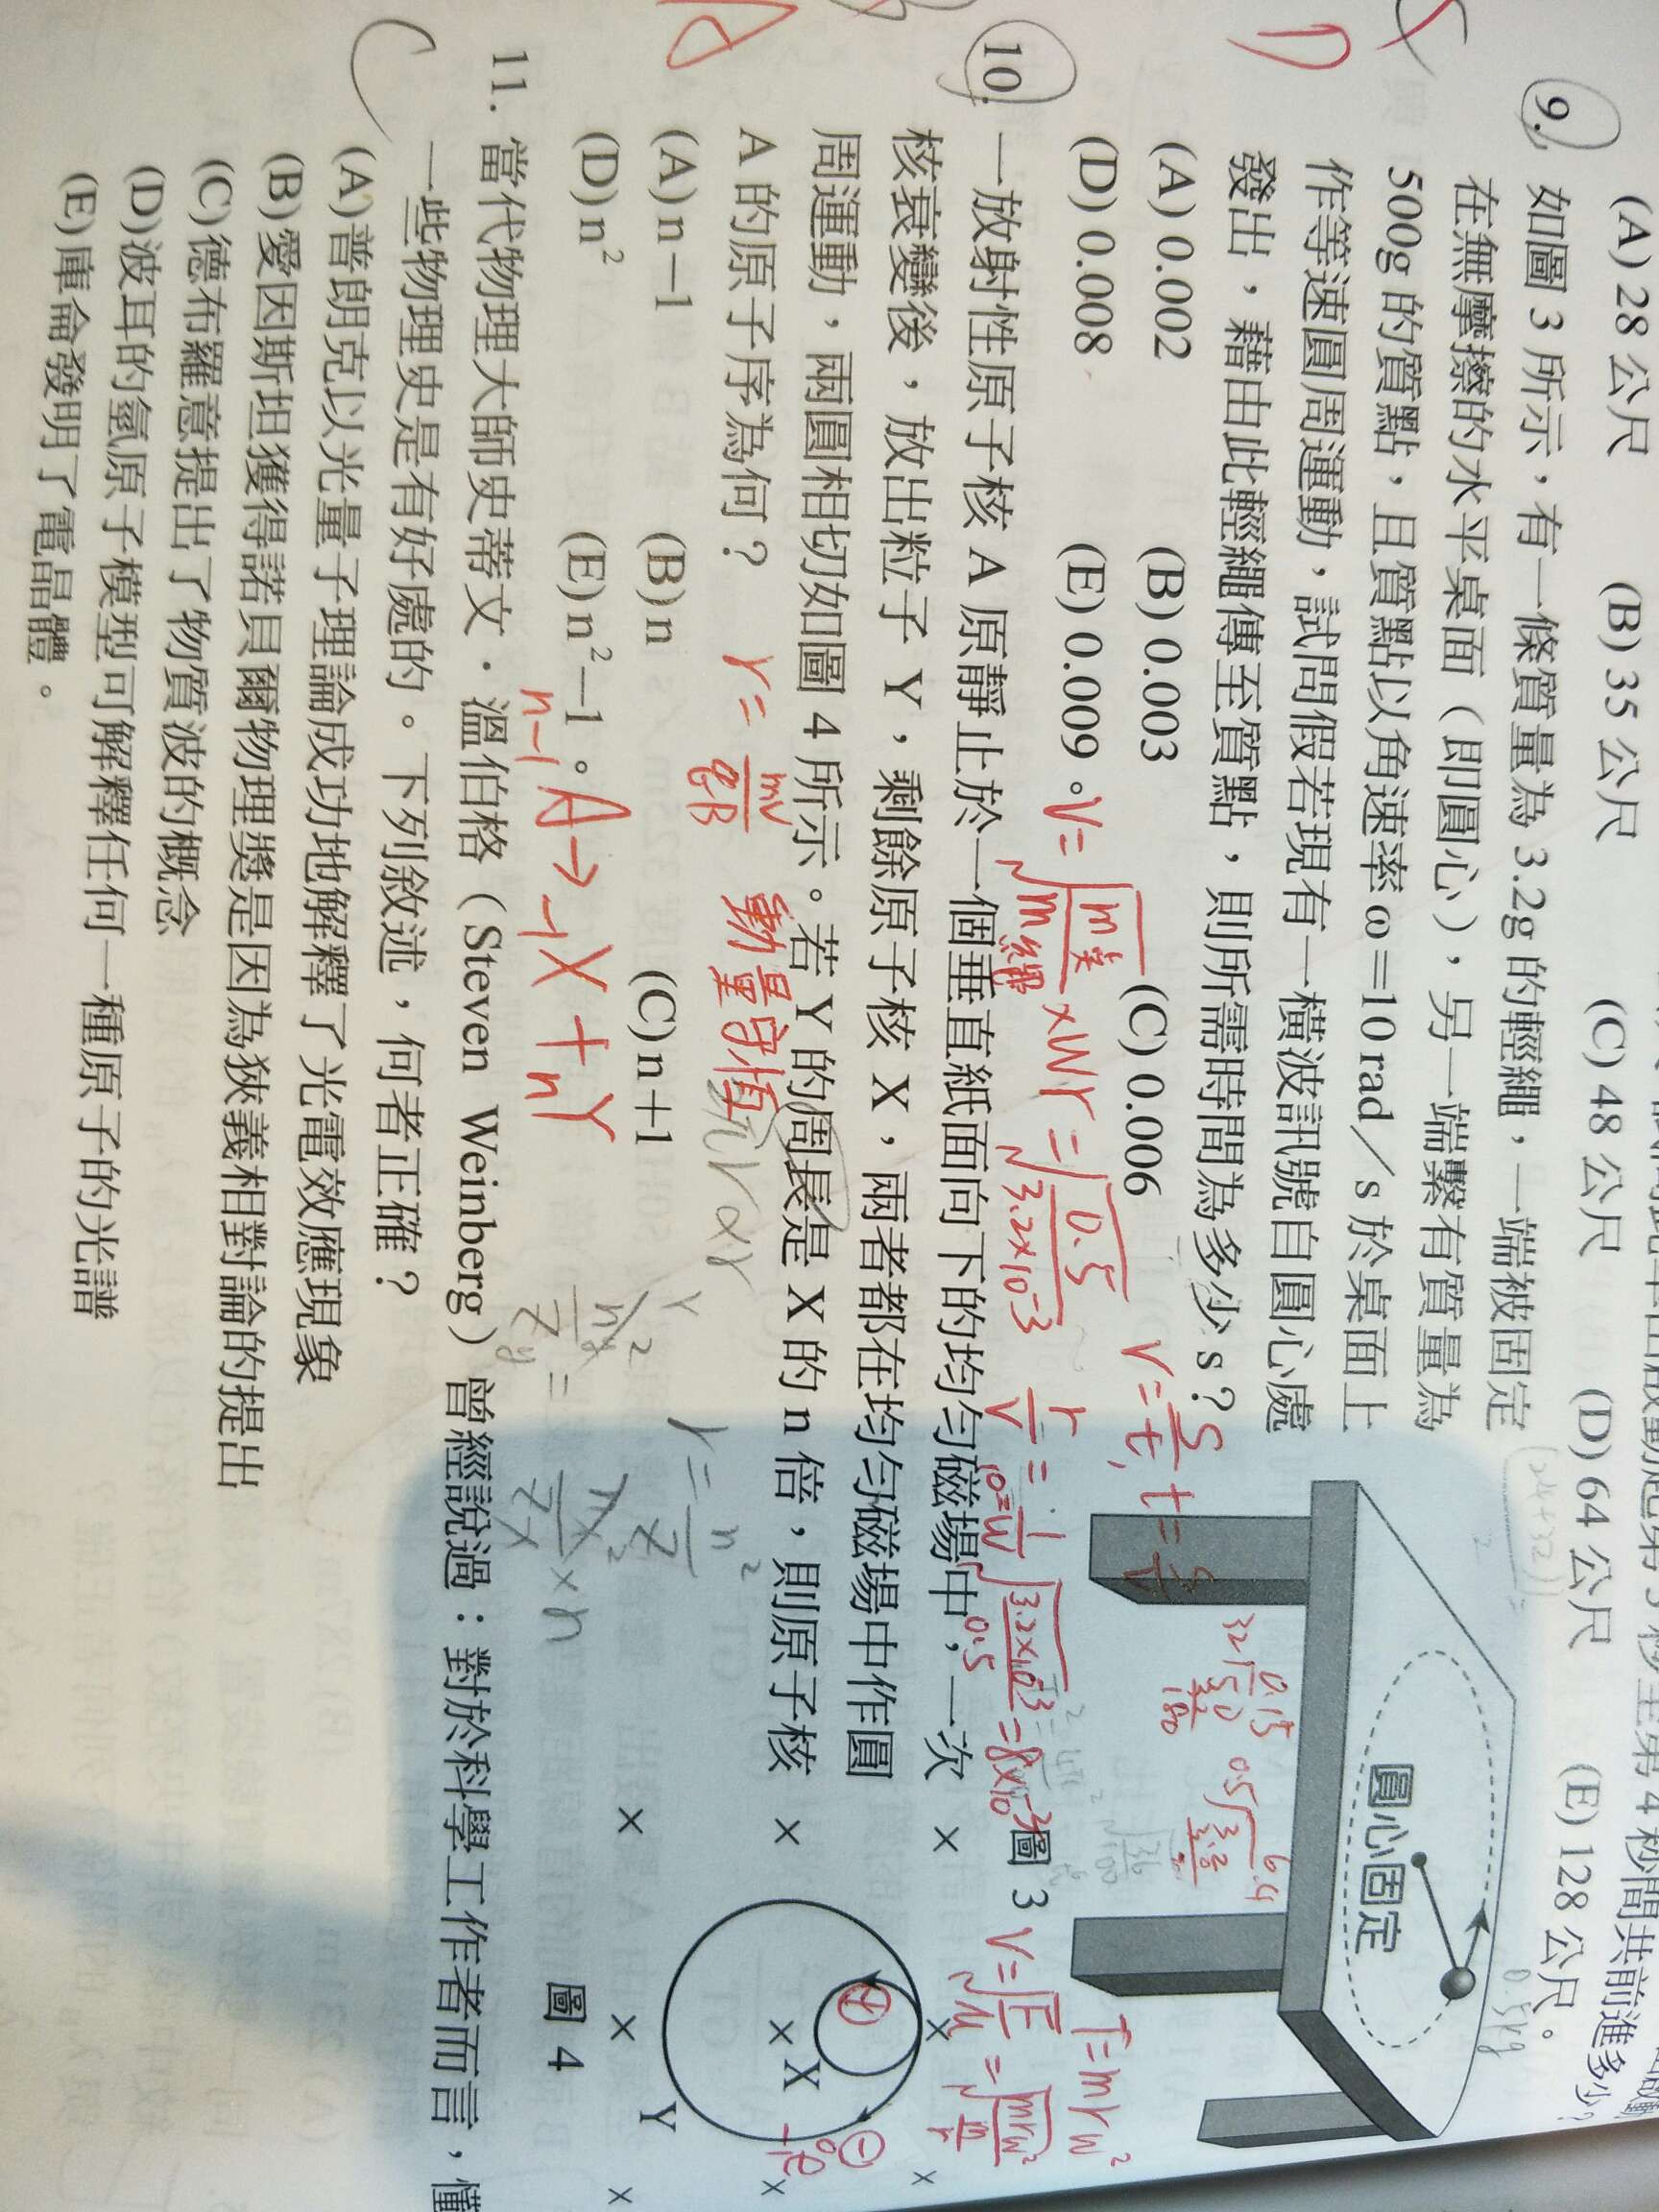 (A) 28 公尺 (B) 35 公尺 (C) 48 公尺 (D) 64 公尺 (E) 128 公尺。
9. 如圖 3 所示，有一條質量為 3.2g 的輕繩，一端被固定
在無摩擦的水平桌面（即圓心），另一端繫有質量為
500g 的質點，且質點以角速率 ω＝10 rad／s 於桌面上
作等速圓周運動，試問假若現有一橫波訊號自圓心處
發出，藉由此輕繩傳至質點，則所需時間為多少 s？
(A) 0.002 (B) 0.003 (C) 0.006
(D) 0.008 (E) 0.009。
圓心固定
0.5kg
圖 3
D
V=√(m質/m繩)×Wr=√(0.5/3.2×10^-3)
V=S/t, t=S/V
r/V=
T=mrw²
V=√(F/μ)=
10. 一放射性原子核 A 原靜止於一個垂直紙面向下的均勻磁場中，一次
核衰變後，放出粒子 Y，剩餘原子核 X，兩者都在均勻磁場中作圓
周運動，兩圓相切如圖 4 所示。若 Y 的周長是 X 的 n 倍，則原子核
A 的原子序為何？
(A) n－1 (B) n (C) n＋1
(D) n² (E) n²－1。
r=mv/qB 動量守恆
n-1 A→ X + -1 Y
× × × × × × × × ×
X
Y
圖 4
A
11. 當代物理大師史蒂文．溫伯格（Steven Weinberg）曾經說過：對於科學工作者而言，懂
一些物理史是有好處的。下列敘述，何者正確？
(A)普朗克以光量子理論成功地解釋了光電效應現象
(B)愛因斯坦獲得諾貝爾物理獎是因為狹義相對論的提出
(C)德布羅意提出了物質波的概念
(D)波耳的氫原子模型可解釋任何一種原子的光譜
(E)庫侖發明了電晶體。
C